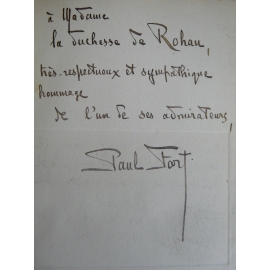 à Madame
la duchesse de Rohan,
très-respectueux et sympathique
hommage
de l'un de ses admirateurs,
Paul Fort.